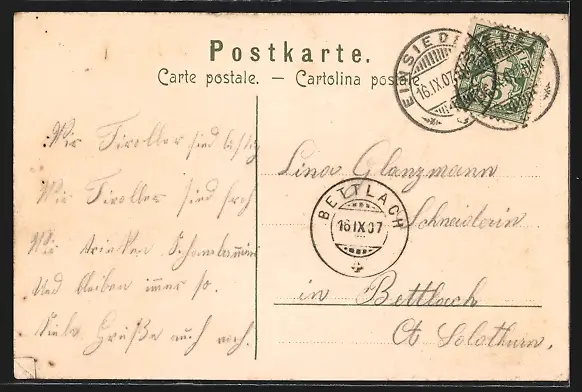 Postkarte.
Carte postale. — Cartolina postale
EINSIEDELN
16.IX.07
Wir Tiroller sind lustig
Wir Tiroller sind froh
Wir trinken
Und bleiben immer so.
Liebe Grüße auch noch.
Lina Glanzmann
Schneiderin
in Bettlach
Ct Solothurn.
BETTLACH
16 IX 07